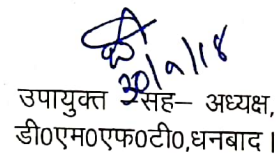 30/9/18
उपायुक्त –सह– अध्यक्ष,
डी0एम0एफ0टी0,धनबाद।